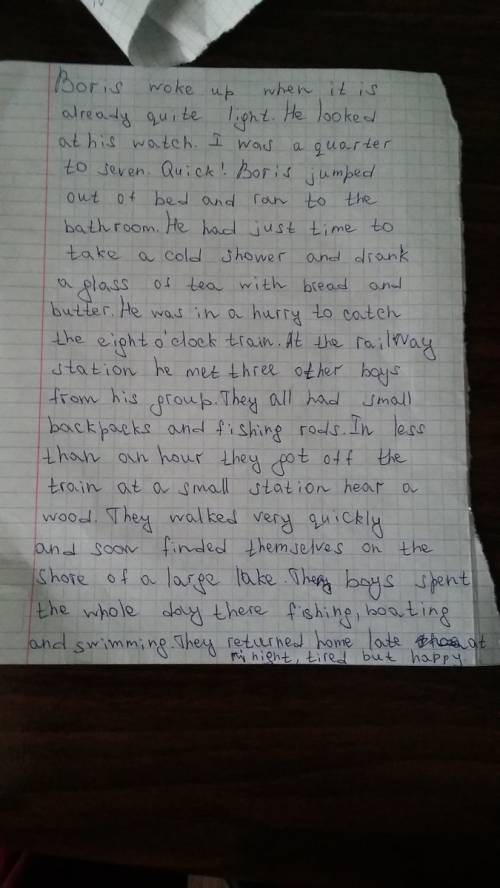 Boris woke up when it is
already quite light. He looked
at his watch. I was a quarter
to seven. Quick! Boris jumped
out of bed and ran to the
bathroom. He had just time to
take a cold shower and drank
a glass of tea with bread and
butter. He was in a hurry to catch
the eight o'clock train. At the railway
station he met three other boys
from his group. They all had small
backpacks and fishing rods. In less
than an hour they got off the
train at a small station near a
wood. They walked very quickly
and soon finded themselves on the
shore of a large lake. The boys spent
the whole day there fishing, boating
and swimming. They returned home late at
night, tired but happy